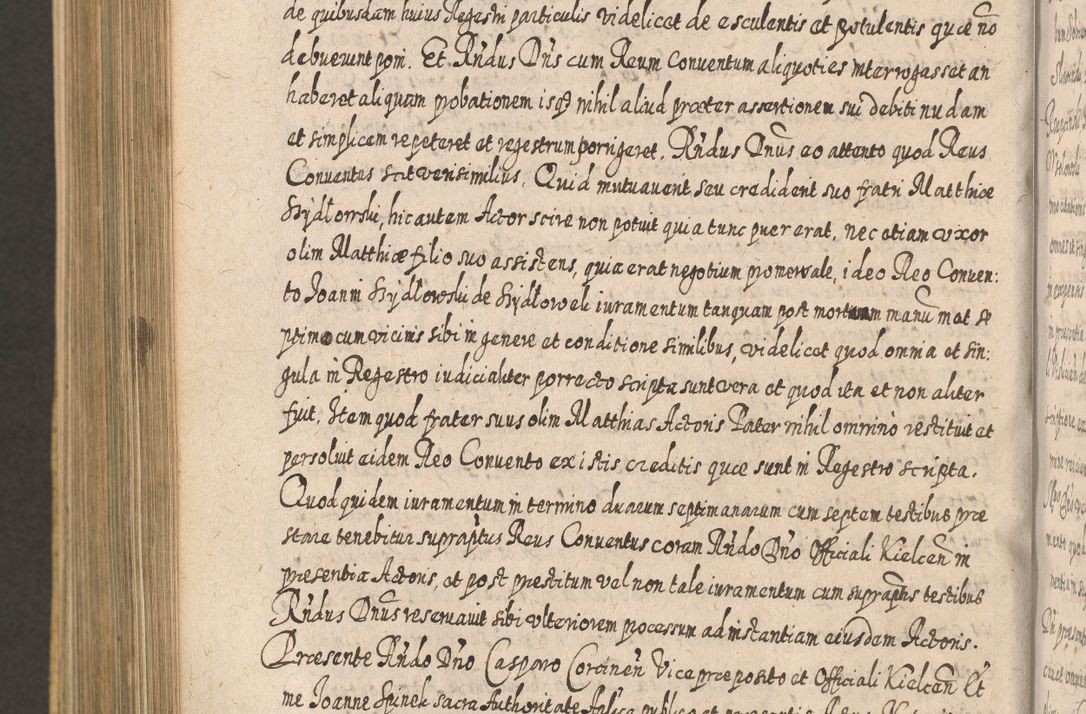 de quibusdam huius Regestri particulis videlicet de esculentis et potulentis quæ nō
debuerunt poni. Et Rñdus Dñs cum Reum Conventum aliquoties interrogasset an
haberet aliquam probationem isq nihil aliud præter assertionem sui debiti nudam
et simplicem repeteret et regestrum porrigeret. Rñdus Dnūs eo attento quod Reus
Conventus scit verisimilius. Quid mutuaverit seu crediderit suo fratri Matthiæ
Hydłowski, hic autem Actor scire non potuit quia tunc puer erat, nec etiam uxor
olim Matthiæ filio suo assistens, quia erat negotium promerwale, ideo Reo Conven:
to Joanni Hydłowski de Hydłowek iuramentum tanquam post mortuam manū met se
ptimo cum vicinis sibi in genere et conditione similibus, videlicet quod omnia et sin:
gula in Regestro iudicialiter porrecto scripta sunt vera et quod ita et non aliter
fuit. Item quod frater suus olim Matthias Actoris Pater nihil omnino restituit et
persoluit eidem Reo Convento ex istis creditis quæ sunt in Regestro scripta.
Quod quidem iuramentum in termino duarum septimanarum cum septem testibus præ
stare tenebitur supraptus Reus Conventus coram Rñdo Dño Officiali Kielceñ in
presentia Actoris, et post prestitum vel non tale iuramentum cum suprapt̄is testibus
Rñdus Dnūs reservavit sibi ulteriorem processum ad instantiam eiusdem Actoris.
Præsente Rñdo Dño Casparo Corcineñ Vicepræposito et Officiali Kielceñ Et
me Joanne Spinek sacra Authoritate Aplica publico et